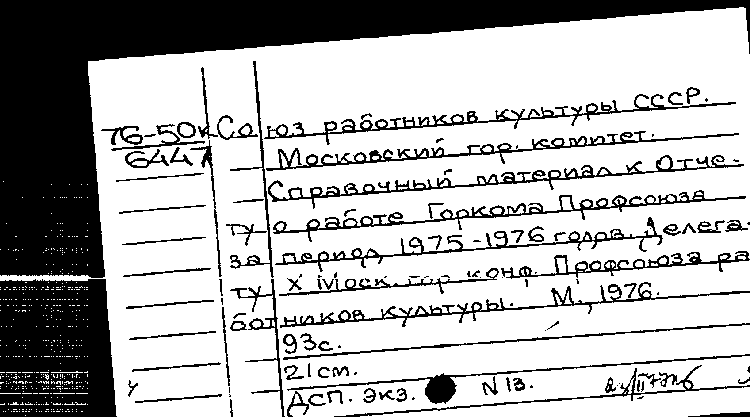 76-50к Союз работников культуры СССР.
6447 Московский гор. комитет.
Справочный материал к Отче-
ту о работе Горкома Профсоюза
за период 1975-1976 годов. Делега-
ту X Моск. гор. конф. Профсоюза ра
ботников культуры. М., 1976.
93с.
21см.
ДСП. экз. N 13.